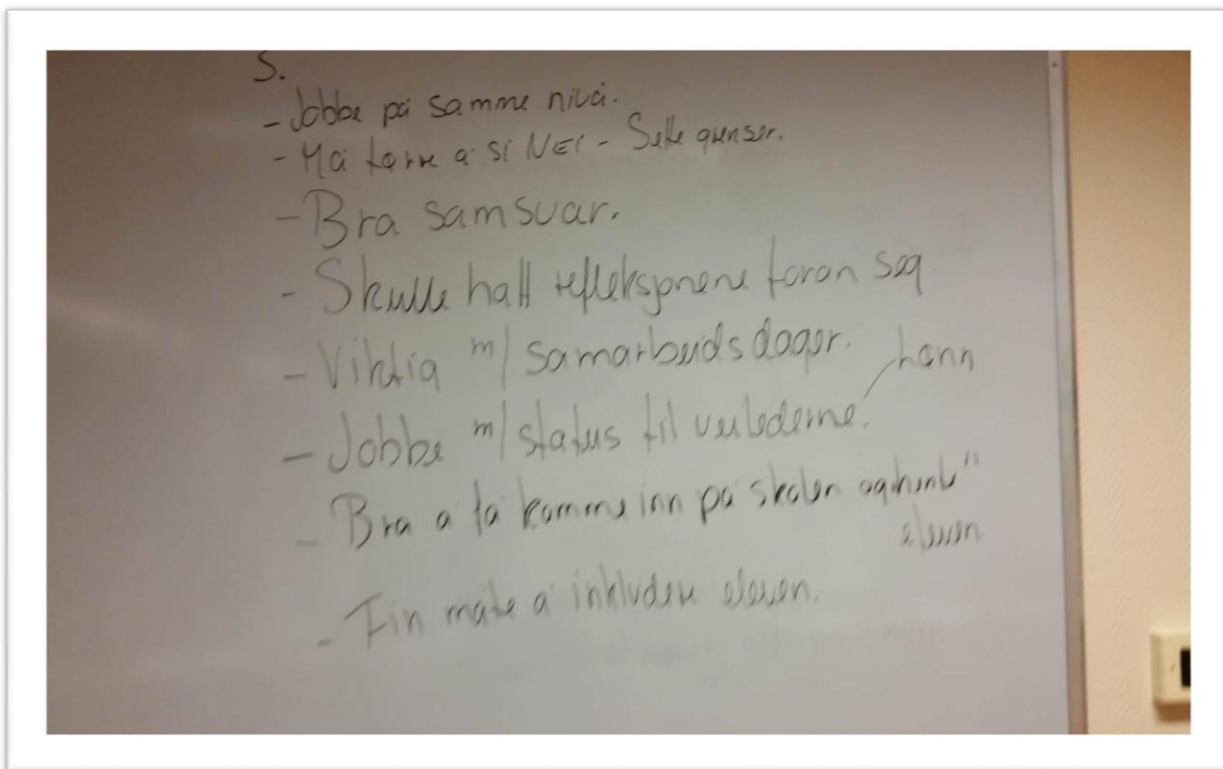 S.
- Jobbe på samme nivå.
- Må tørre å si NEI - Sette grenser.
- Bra samsvar.
- Skulle hatt refleksjonene foran seg
- Viktig m/ samarbeidsdager.
- Jobbe m/ status til veilederne.
- Bra å få komme inn på skolen og "hente"
eleven
- Fin måte å inkludere eleven.